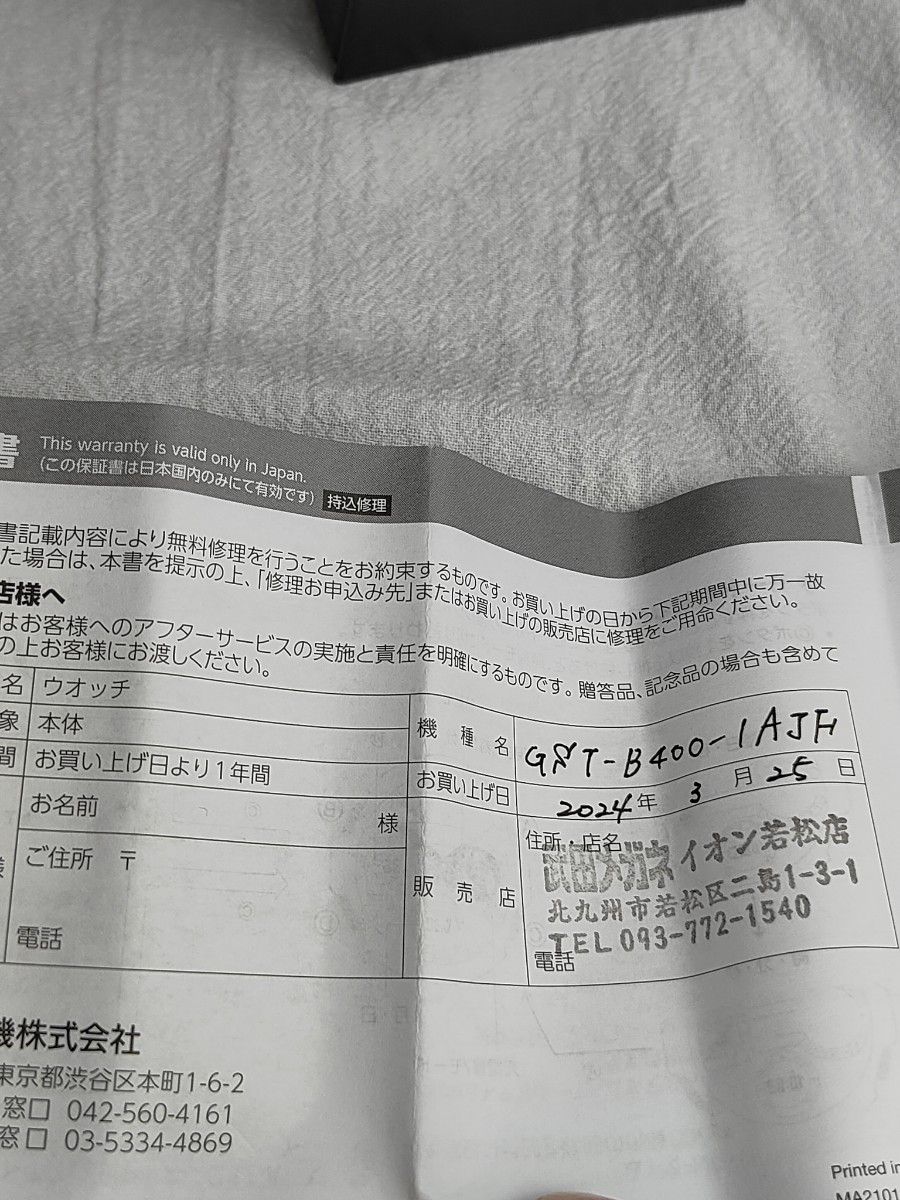 書 This warranty is valid only in Japan.
(この保証書は日本国内のみにて有効です) 持込修理
書記載内容により無料修理を行うことをお約束するものです。お買い上げの日から下記期間中に万一故
た場合は、本書を提示の上、「修理お申込み先」またはお買い上げの販売店に修理をご用命ください。
店様へ
はお客様へのアフターサービスの実施と責任を明確にするものです。贈答品、記念品の場合も含めて
の上お客様にお渡しください。
名 ウオッチ
機種名 GST-B400-1AJF
象 本体
間 お買い上げ日より1年間
お買い上げ日 2024年 3月 25日
お名前 様
ご住所 〒
電話
販売店
住所・店名
武田メガネ イオン若松店
北九州市若松区二島1-3-1
TEL 093-772-1540
電話
機株式会社
東京都渋谷区本町1-6-2
窓口 042-560-4161
窓口 03-5334-4869
Printed in
MA2101